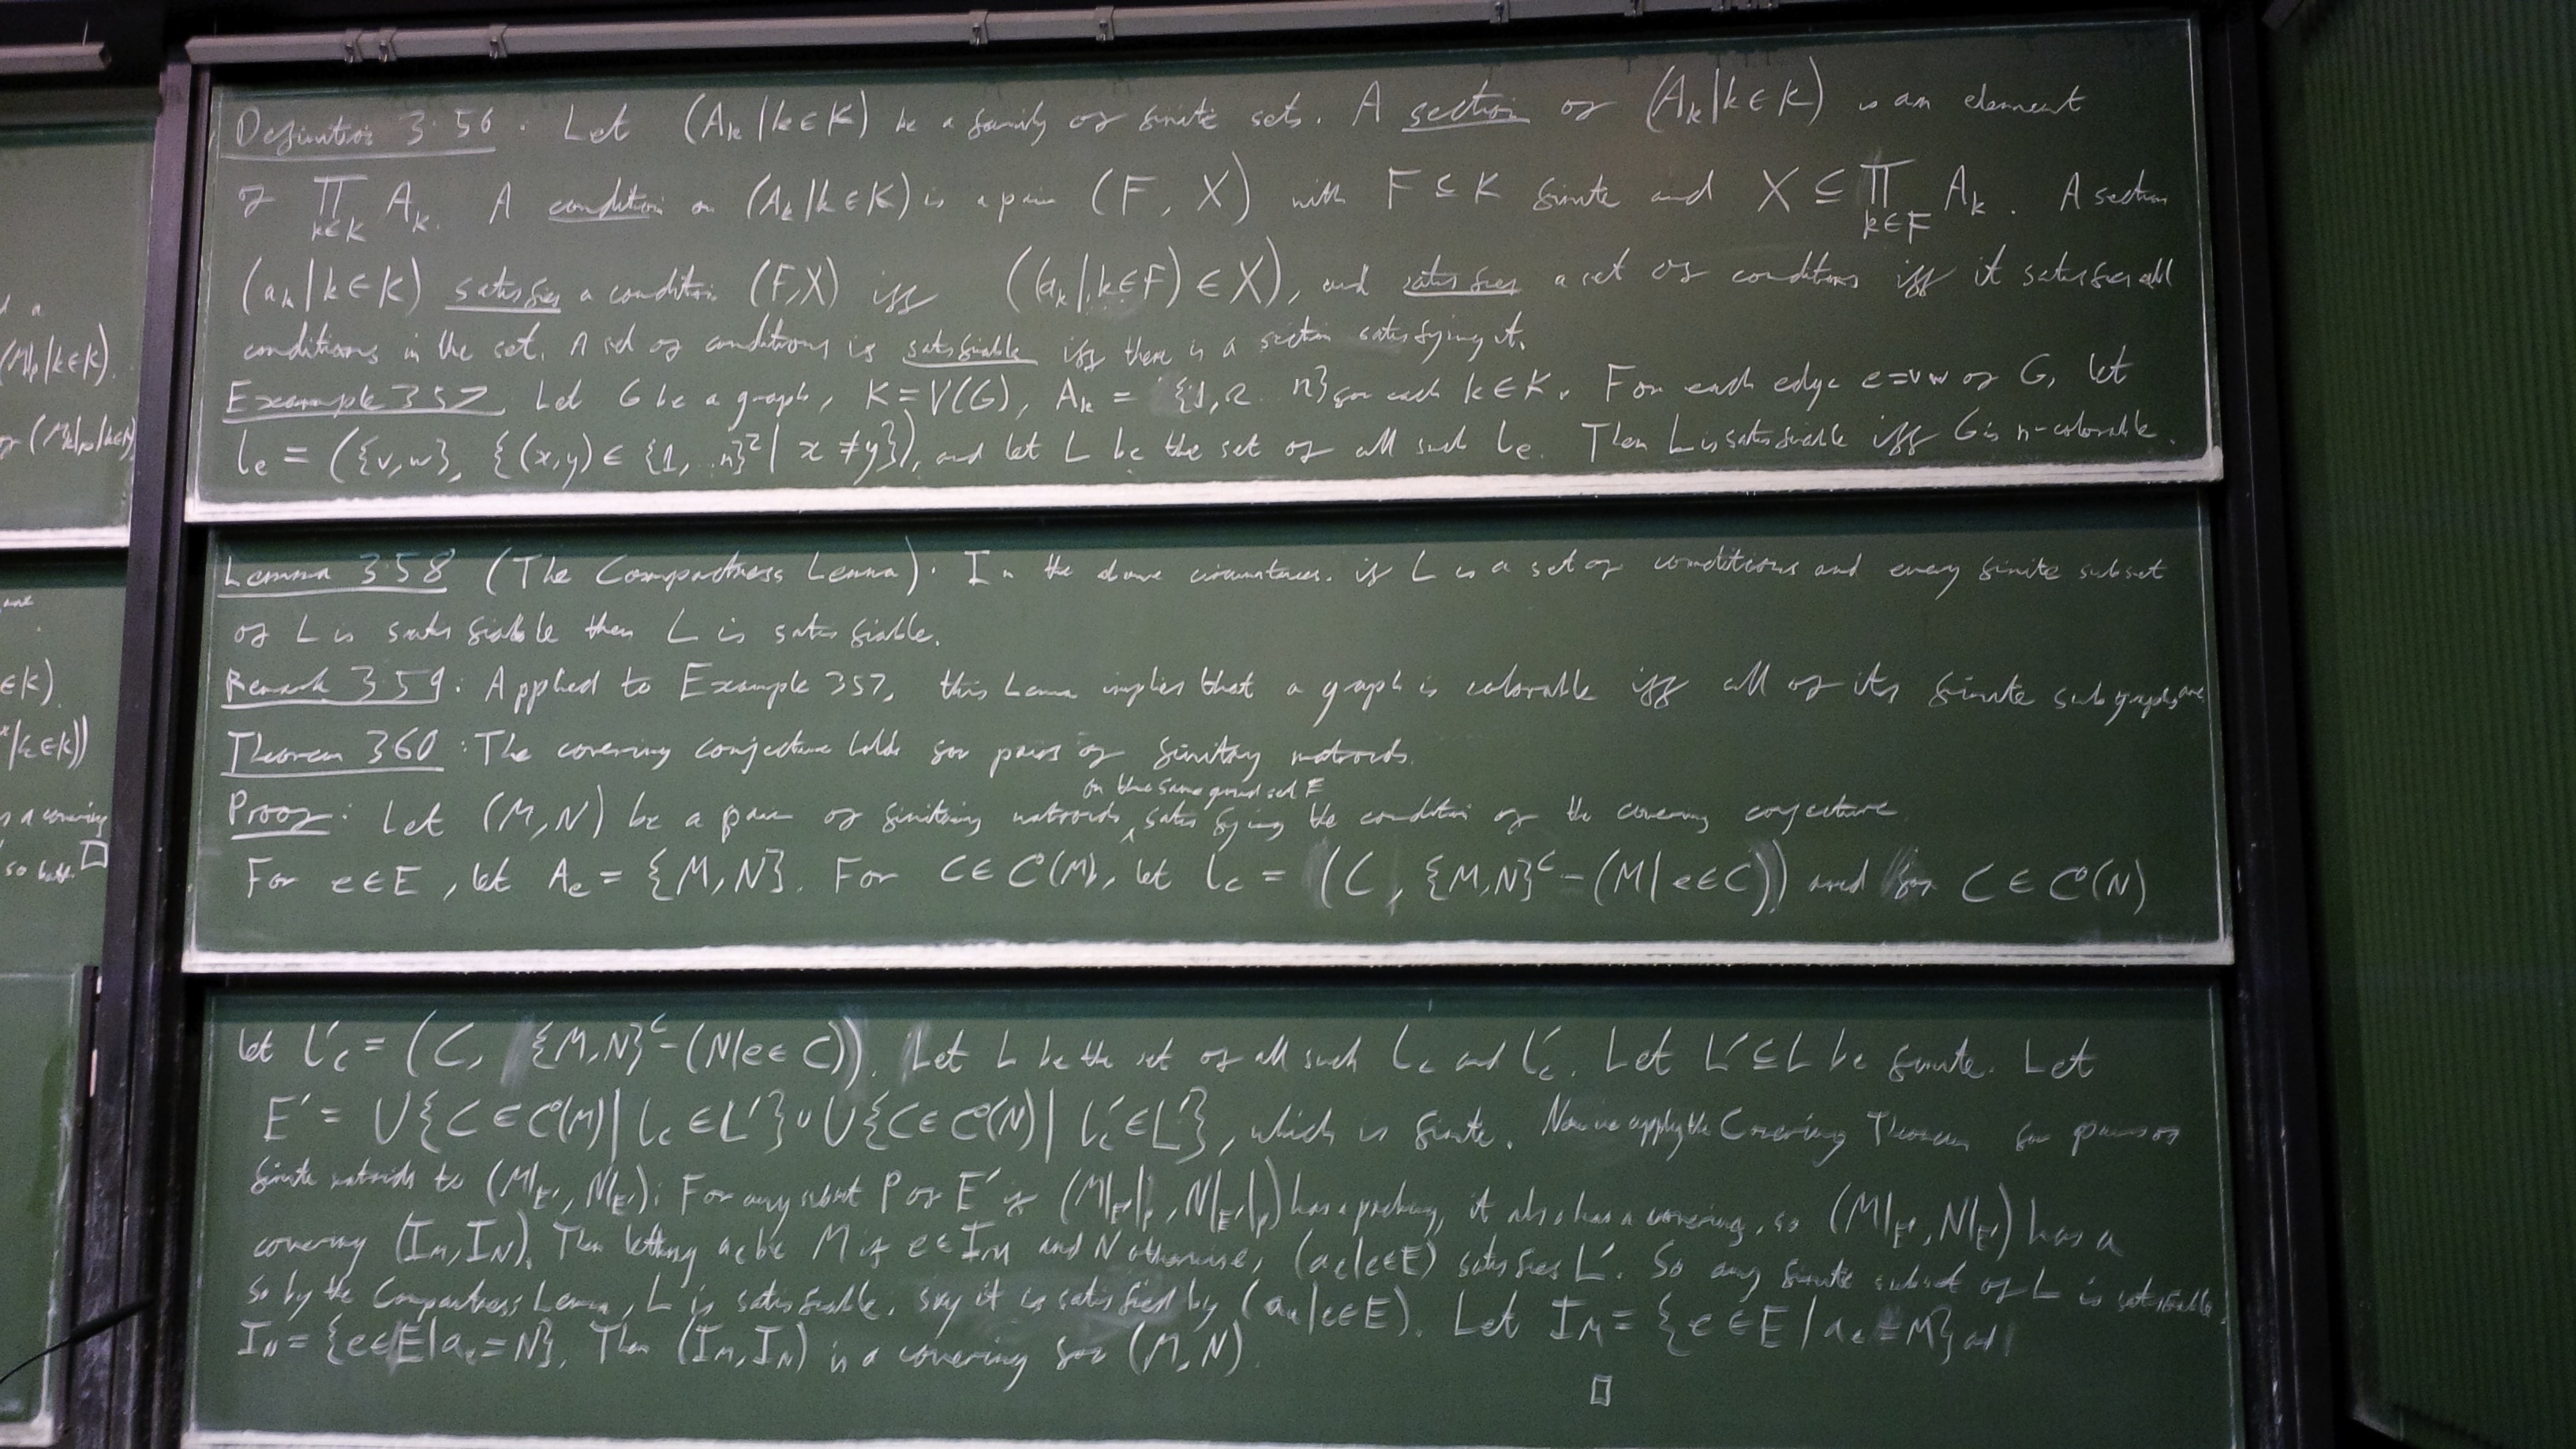 Definition 3.56. Let (A_k | k ∈ K) be a family of finite sets. A section of (A_k | k ∈ K) is an element
of ∏_{k∈K} A_k. A condition on (A_k | k ∈ K) is a pair (F, X) with F ⊆ K finite and X ⊆ ∏_{k∈F} A_k. A section
(a_k | k ∈ K) satisfies a condition (F, X) iff ((a_k | k ∈ F) ∈ X), and satisfies a set of conditions iff it satisfies all
conditions in the set. A set of conditions is satisfiable iff there is a section satisfying it.
Example 357 Let G be a graph, K = V(G), A_k = {1, 2 n} for each k ∈ K. For each edge e = vw of G, let
l_e = ({v, w}, {(x, y) ∈ {1, n}² | x ≠ y}), and let L be the set of all such l_e. Then L is satisfiable iff G is n-colorable.
Lemma 358 (The Compactness Lemma). In the above circumstances, if L is a set of conditions and every finite subset
of L is satisfiable then L is satisfiable.
Remark 359: Applied to Example 357, this Lemma implies that a graph is colorable iff all of its finite subgraphs are
Theorem 360: The covering conjecture holds for pairs of finitary matroids.
on the same ground set E
Proof: Let (M, N) be a pair of finitary matroids, satisfying the condition of the covering conjecture.
For e ∈ E, let A_e = {M, N}. For C ∈ C(M), let l_C = (C, {M, N}^C − (M | e ∈ C)) and for C ∈ C(N)
let l'_C = (C, {M, N}^C − (N | e ∈ C)). Let L be the set of all such l_C and l'_C. Let L' ⊆ L be finite. Let
E' = ∪{C ∈ C(M) | l_C ∈ L'} ∪ ∪{C ∈ C(N) | l'_C ∈ L'}, which is finite. Now we apply the Covering Theorem for pairs of
finite matroids to (M|_E', N|_E'): For any subset P of E' if (M|_E'|_P, N|_E'|_P) has a packing, it also has a covering, so (M|_E', N|_E') has a
covering (I_M, I_N). Then letting a_e be M if e ∈ I_M and N otherwise, (a_e | e ∈ E) satisfies L'. So any finite subset of L is satisfiable,
so by the Compactness Lemma, L is satisfiable, say it is satisfied by (a_e | e ∈ E). Let I_M = {e ∈ E | a_e = M} and
I_N = {e ∈ E | a_e = N}. Then (I_M, I_N) is a covering for (M, N).
□
a
(M_k | k ∈ K).
∈ K).
| k ∈ K))
a covering
so both □